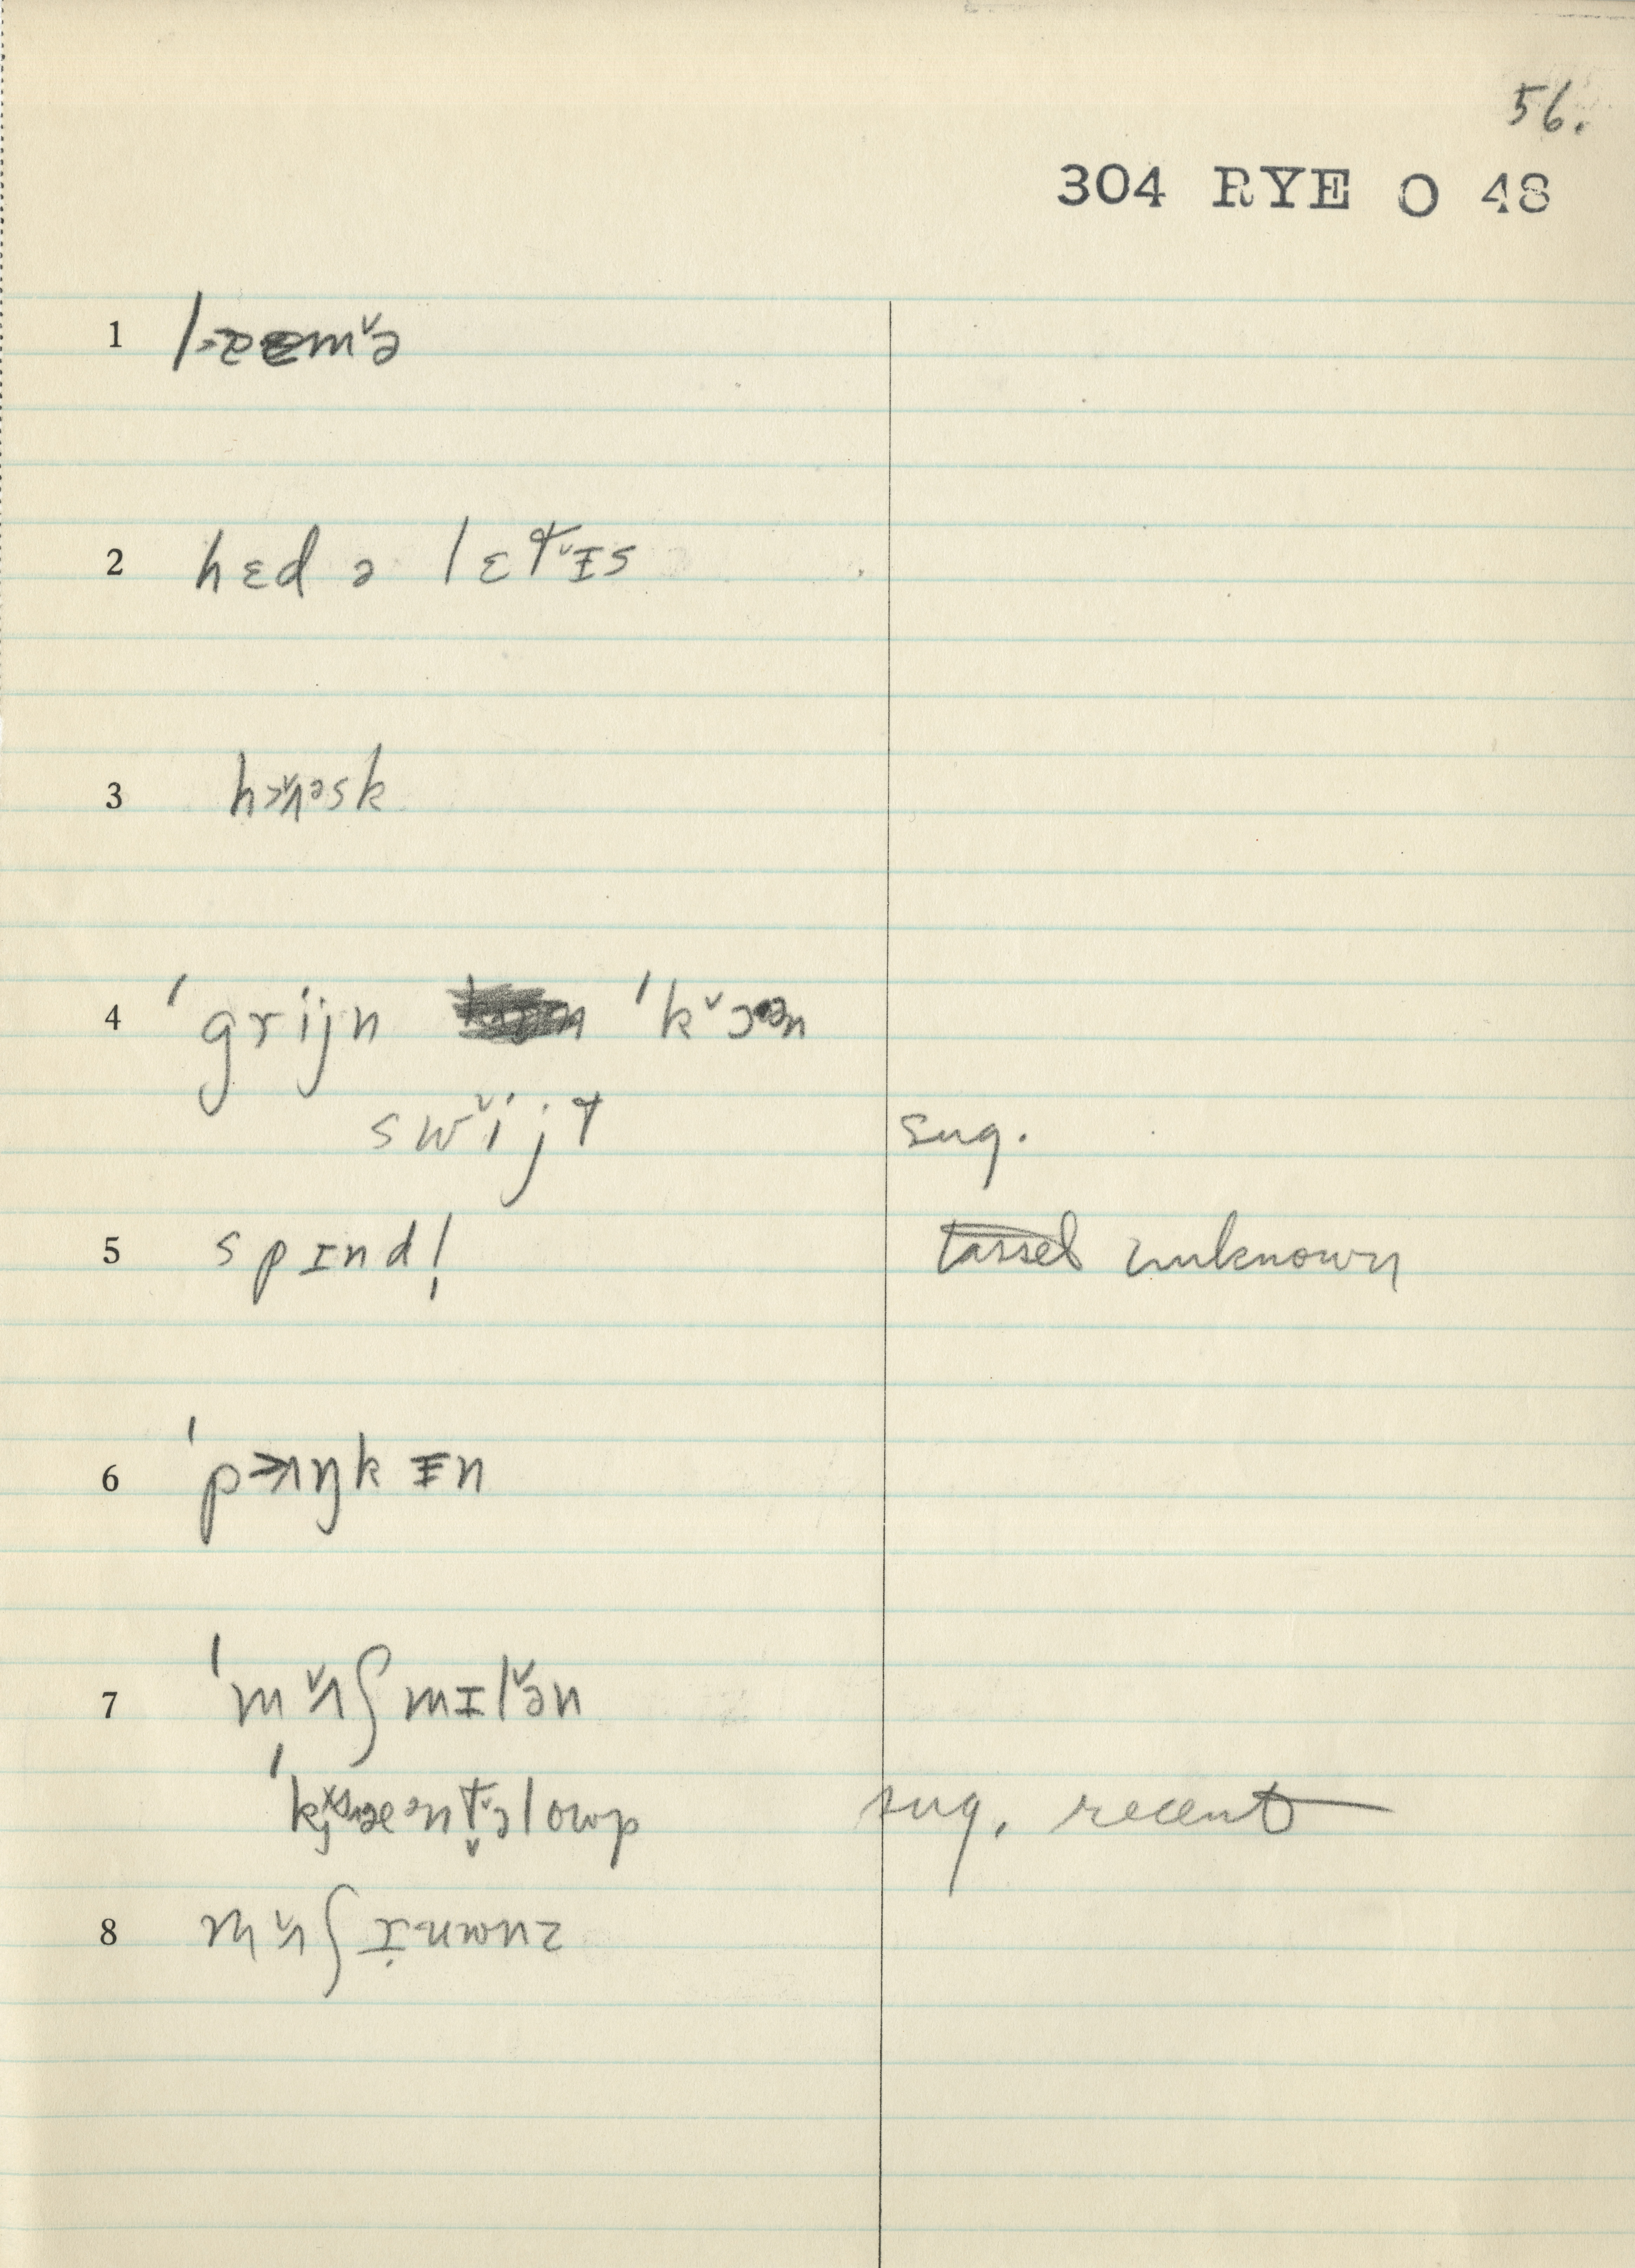 56.
304 RYE O 48
1
2 hɛd ə lɛt̬ɪs
3 hɔ̌ʌəsk
4 ˈgrijn ˈkˇɔən
swˇijt sug.
5 spɪndl̩ tassel unknown
6 ˈpʌŋkɪn
7 ˈmˇʌʃmɪlˇən
ˈkæəntəlowp sug. recent
8 mˇʌʃɪ̣uwnz